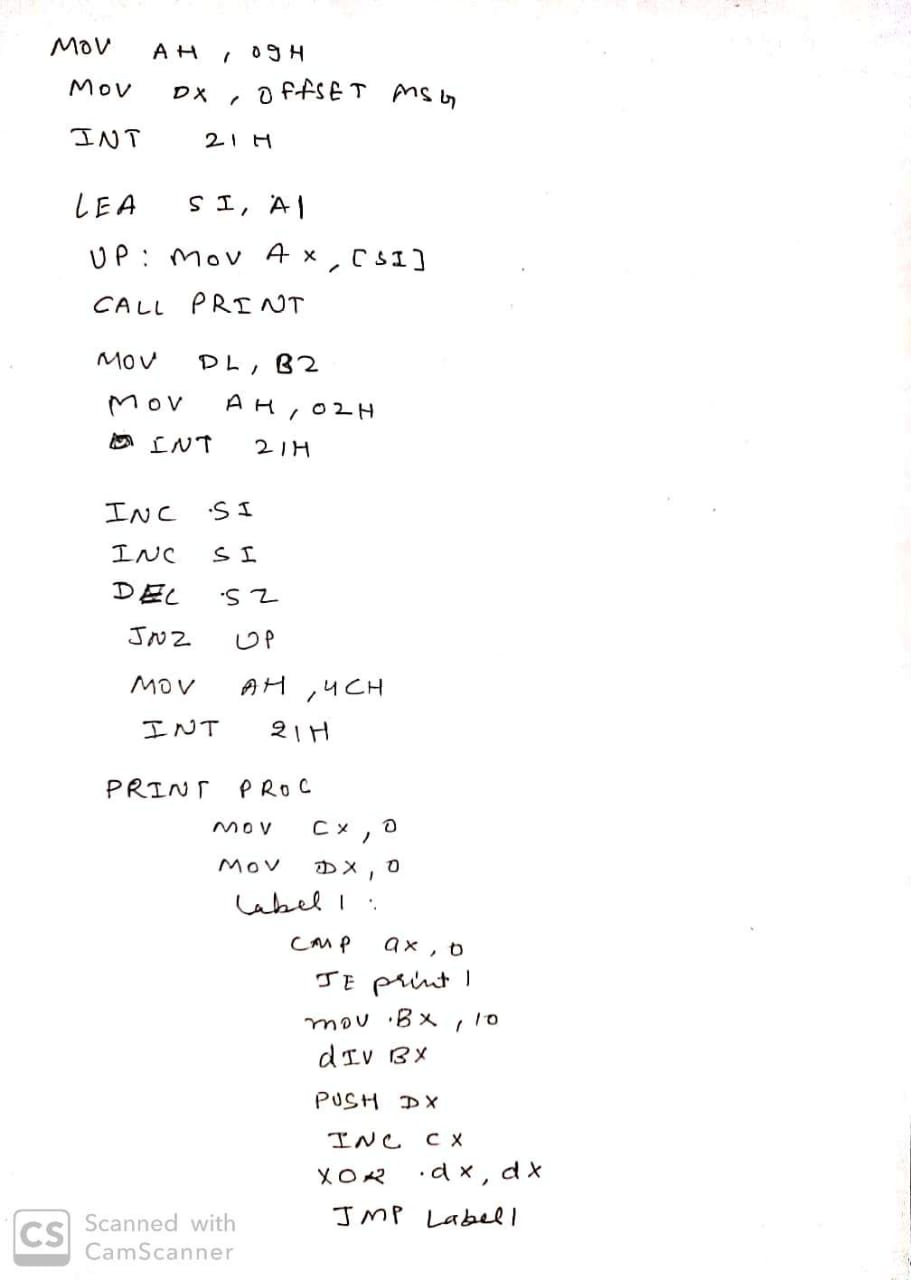 MOV AH, 09H
MOV DX, OFFSET MSG
INT 21H
LEA SI, A1
UP: MOV AX, [SI]
CALL PRINT
MOV DL, B2
MOV AH, 02H
INT 21H
INC SI
INC SI
DEC S2
JNZ UP
MOV AH, 4CH
INT 21H
PRINT PROC
MOV CX, 0
MOV DX, 0
Label 1:
CMP ax, 0
JE print 1
mov BX, 10
dIV BX
PUSH DX
INC CX
XOR dx, dx
JMP Label1
CS Scanned with
CamScanner